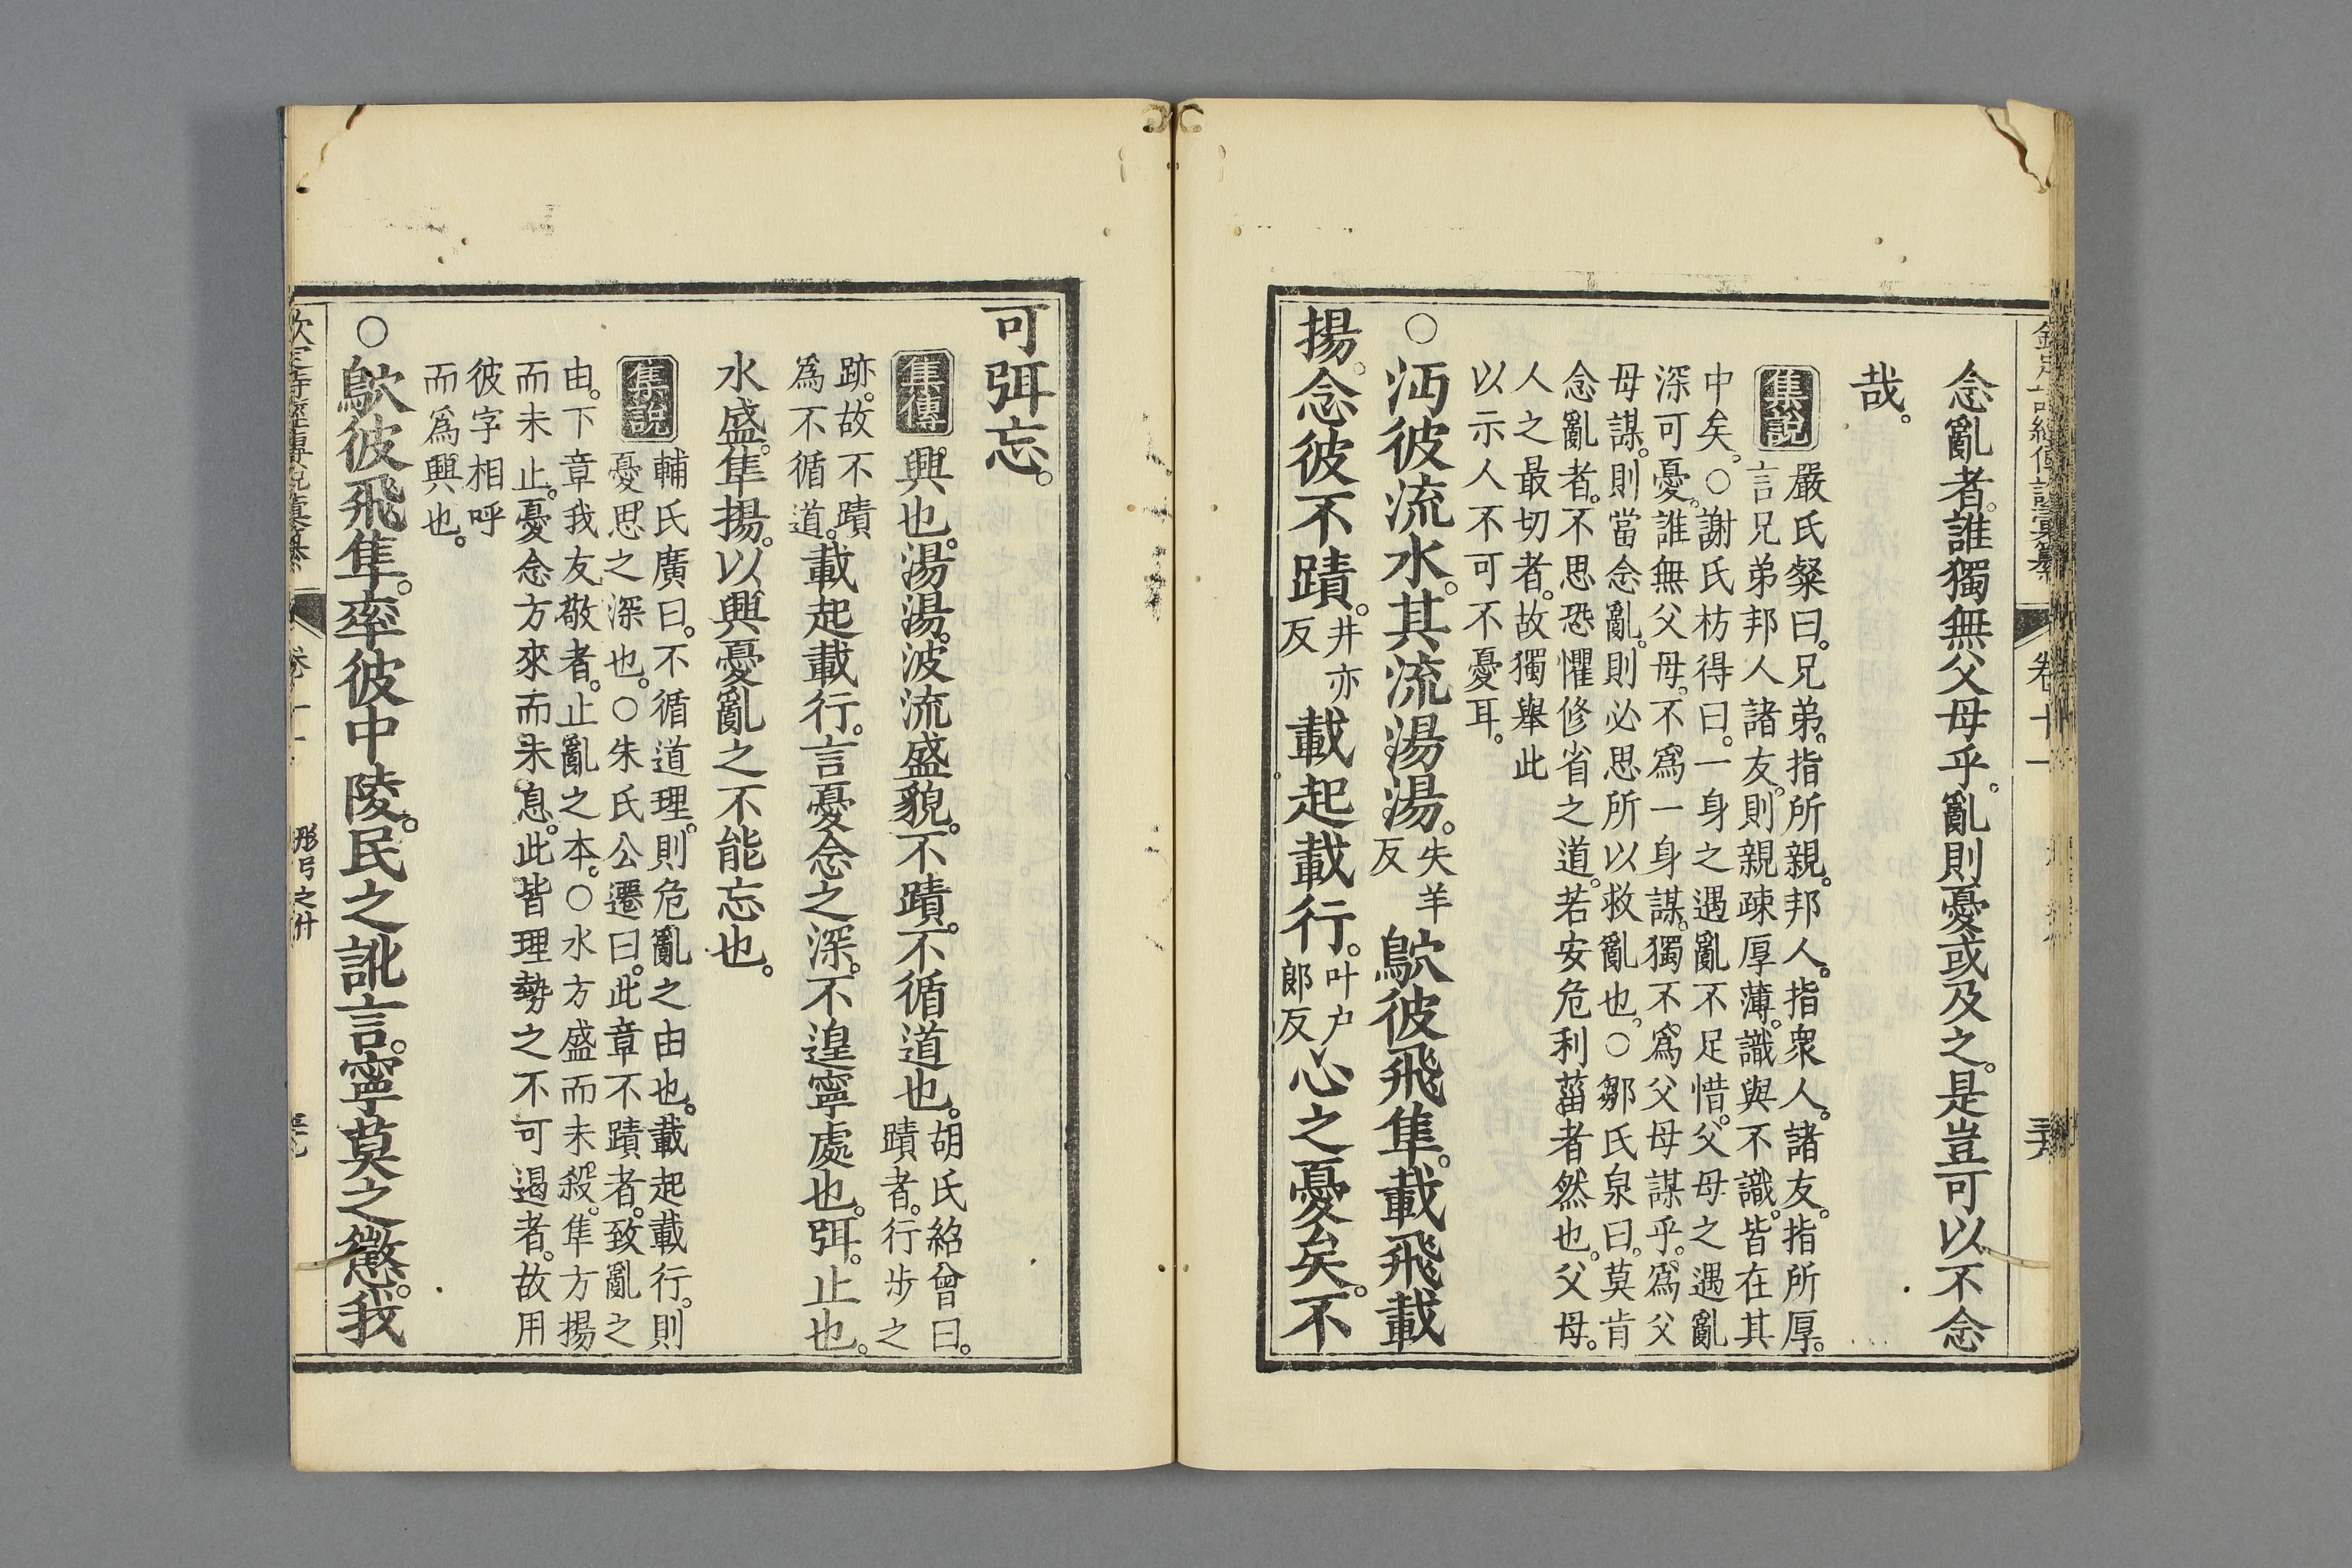 卷十一
念亂者。誰獨無父母乎。亂則憂或及之。是豈可以不念
哉。
集說
嚴氏粲曰。兄弟。指所親。邦人。指衆人。諸友。指所厚。
言兄弟邦人諸友。則親疎厚薄。識與不識。皆在其
中矣。○謝氏枋得曰。一身之遇亂不足惜。父母之遇亂
深可憂。誰無父母。不爲一身謀。獨不爲父母謀乎。爲父
母謀。則當念亂。則必思所以救亂也。○鄒氏泉曰。莫肯
念亂者。不思恐懼修省之道。若安危利菑者然也。父母。
人之最切者。故獨舉此
以示人不可不憂耳。
○沔彼流水。其流湯湯。失羊反鴥彼飛隼。載飛載
揚。念彼不蹟。井亦反載起載行。叶户郎反心之憂矣。不
可弭忘。
集傳興也。湯湯。波流盛貌。不蹟。不循道也。胡氏紹曾曰。蹟者。行步之
跡。故不蹟爲不循道。載起載行。言憂念之深。不遑寧處也。弭。止也。
水盛隼揚。以興憂亂之不能忘也。
集說
輔氏廣曰。不循道理。則危亂之由也。載起載行。則
憂思之深也。○朱氏公遷曰。此章不蹟者。致亂之
由。下章我友敬者。止亂之本。○水方盛而未殺。隼方揚
而未止。憂念方來而未息。此皆理勢之不可遏者。故用
彼字相呼
而爲興也。
○鴥彼飛隼。率彼中陵。民之訛言。寧莫之懲。我
欽定詩經傳說彙纂 卷十一 彤弓之什